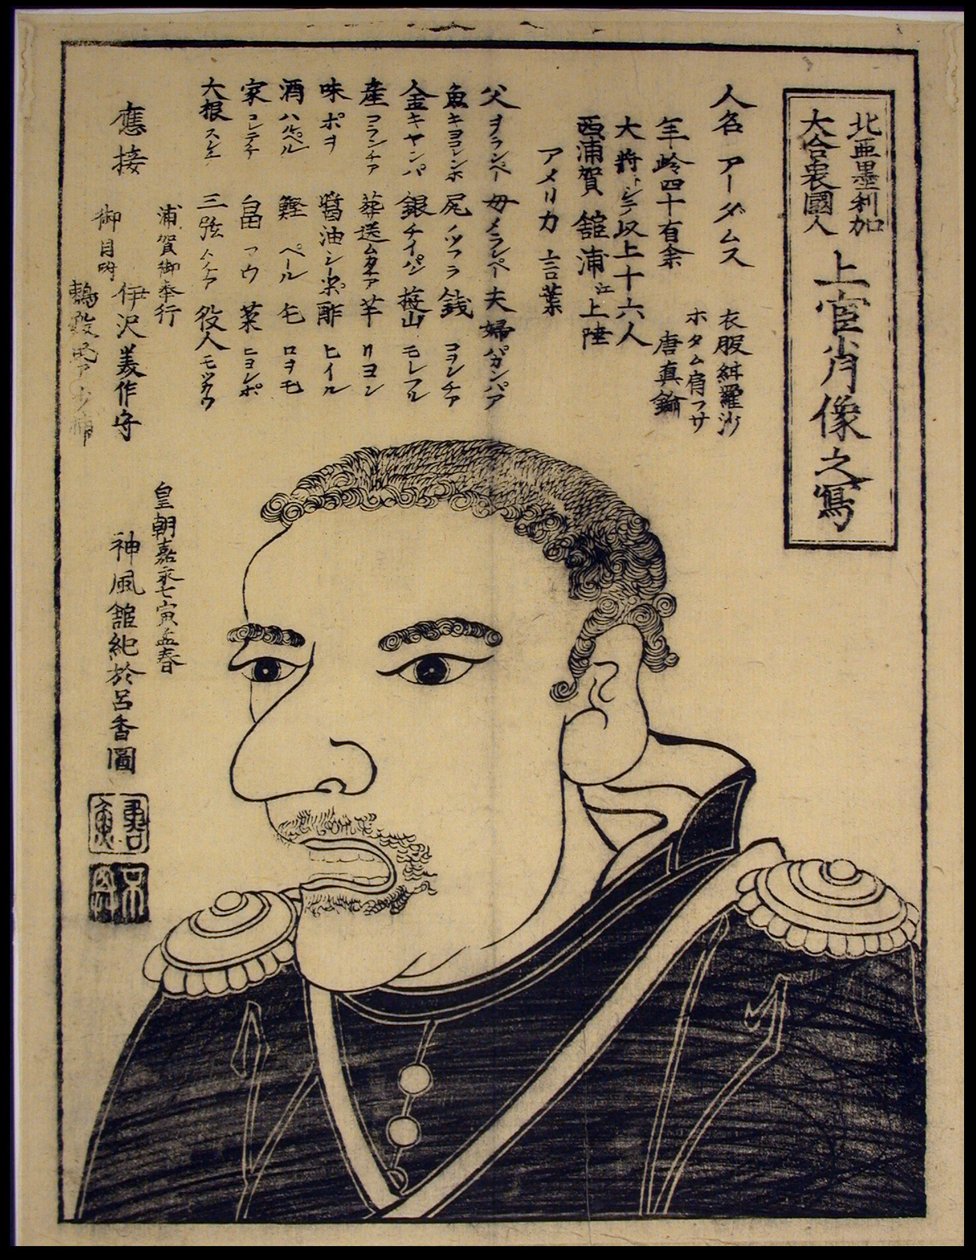 北亜墨利加
大合衆國人
上官肖像之寫
人名 アーダムス
衣服紺羅沙
ホタム肩フサ
唐真鍮
年岭四十有余
大将 以上十六人
西浦賀 舘浦江上陸
アメリカ 言葉
父 ヲランペー 母 メランペー 夫婦 パガンパア
魚 キヨコンホ 尻 ノツラ 銭 コヨンチア
金 キヤンパ 銀 チイパン 薩山 モレフル
産 コランチア 葬送 ムカチア 芋 リヨン
味 ポヲ 醤油 シーポン 酢 ヒイル
酒 ハルペル 鰹 ペール 毛 ロヲモ
家 コレテチ 畠 フウ 菜 ヒヨンポ
大根 スレエ 三弦 役人 モツカウ
應接
浦賀御奉行
伊沢美作守
御目附
皇朝嘉永七寅孟春
神風舘紀於呂香圖